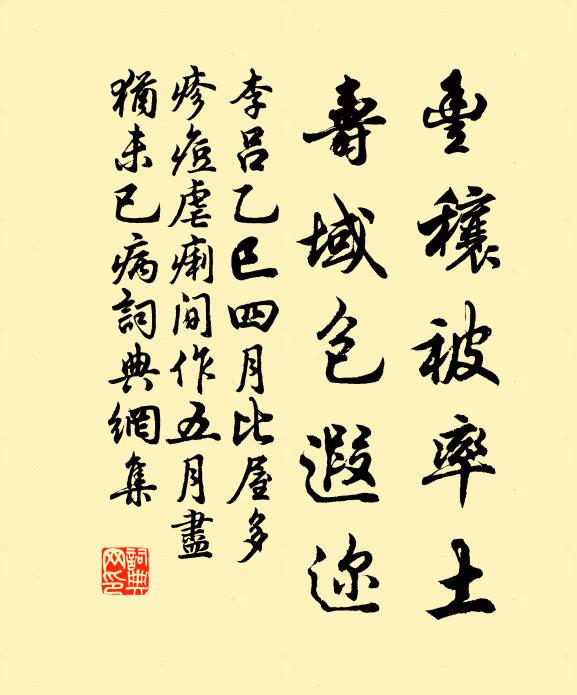 豐穰被率土
壽域包遐迩
李呂乙巳四月比屋多
疹痘虐痢間作五月盡
猶未已病詞典網集
詞典网印